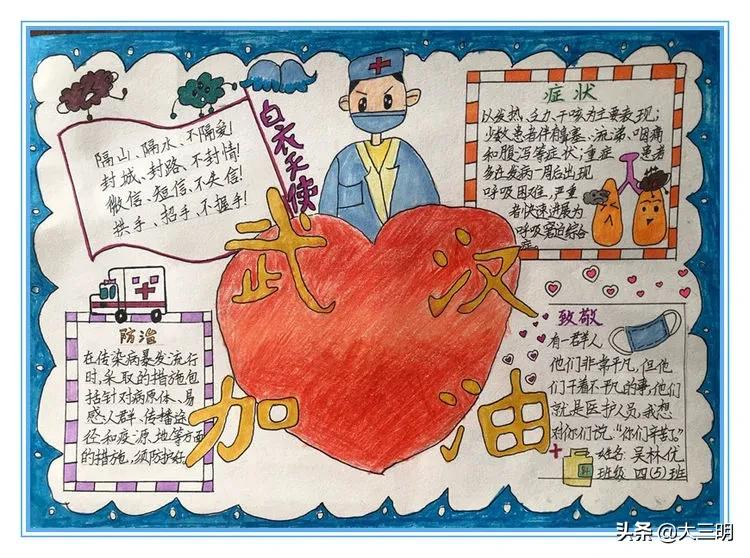 隔山、隔水、不隔爱!
封城、封路、不封情!
微信、短信、不失信!
拱手、招手、不握手!
白衣天使
症状
以发热、乏力、干咳为主要表现;
少数患者伴有鼻塞、流涕、咽痛
和腹泻等症状;重症患者
多在发病一周后出现
呼吸困难,严重
者快速进展为
呼吸窘迫综合
症。
武汉
加油
防治
在传染病暴发流行
时,采取的措施包
括针对病原体、易
感人群、传播途
径和疫源地等方面
的措施,须防护好。
致敬
有一群人
他们非常平凡,但他
们干着不平凡的事,他们
就是医护人员,我想
对你们说:“你们辛苦了。”
姓名:吴林优
班级 四(5)班
头条 @大三明